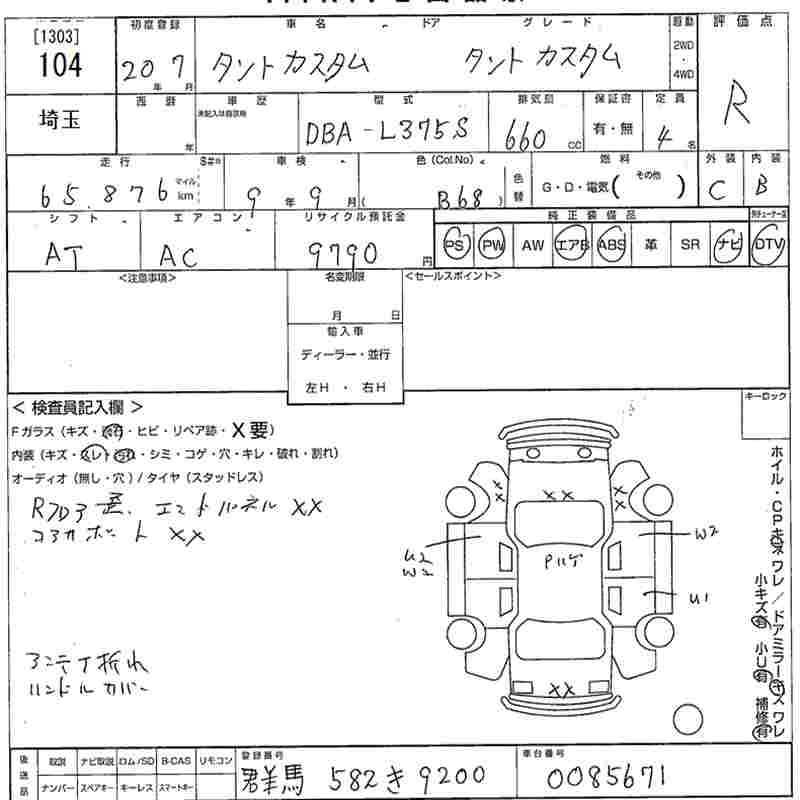 初度登録 車名 ドア グレード 駆動 評価点
[1303]
104
20年 7月 タントカスタム タントカスタム 2WD・4WD R
埼玉
西暦 車歴 型式 排気量 保証書 定員
年 未記入は自家用 DBA-L375S 660cc 有・無 4名
走行 車検 色(Col.No) 色替 燃料 外装 内装
65,876 マイル km 9年 9月 ( B68 ) G・D・電気( その他 ) C B
シフト エアコン リサイクル預託金 純正装備品
AT AC 9790円 PS PW AW エアB ABS 革 SR ナビ DTV
<注意事項> 名変期限 <セールスポイント>
月 日
輸入車
ディーラー・並行
左H ・ 右H
キーロック
< 検査員記入欄 >
Fガラス(キズ・・ヒビ・リペア跡・X要)
内装(キズ・・シミ・コゲ・穴・キレ・破れ・割れ)
オーディオ(無し・穴)/タイヤ(スタッドレス)
XX
XX
XX
XX
XX
Pルーフ
U2
W2
W2
U1
XX
アンテナ折れ
ハンドルカバー
ホイル・CPキズワレ/ドアミラーキズワレ
小キズ有 小U有 補修有
後送品 取説 ナビ取説 ロム/SD B-CAS リモコン 登録番号 車台番号
ナンバー スペアキー キーレス スマートキー 群馬 582 き 9200 0085671